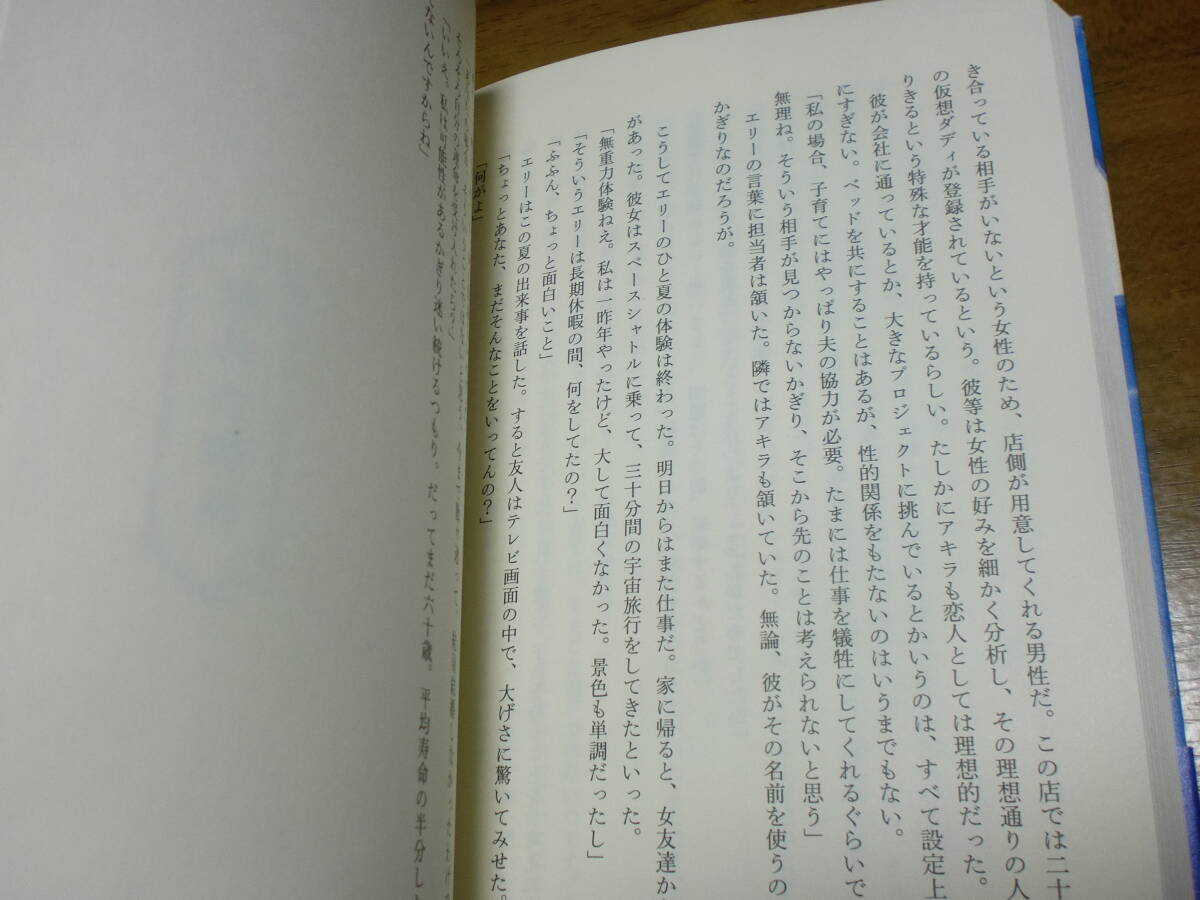 き合っている相手がいないという女性のため、店側が用意してくれる男性だ。この店では二十
の仮想ダディが登録されているという。彼等は女性の好みを細かく分析し、その理想通りの人
りきるという特殊な才能を持っているらしい。たしかにアキラも恋人としては理想的だった。
彼が会社に通っているとか、大きなプロジェクトに挑んでいるとかいうのは、すべて設定上
にすぎない。ベッドを共にすることはあるが、性的関係をもたないのはいうまでもない。
「私の場合、子育てにはやっぱり夫の協力が必要。たまには仕事を犠牲にしてくれるぐらいで
無理ね。そういう相手が見つからないかぎり、そこから先のことは考えられないと思う」
エリーの言葉に担当者は頷いた。隣ではアキラも頷いていた。無論、彼がその名前を使うの
かぎりなのだろうが。
こうしてエリーのひと夏の体験は終わった。明日からはまた仕事だ。家に帰ると、女友達か
があった。彼女はスペースシャトルに乗って、三十分間の宇宙旅行をしてきたといった。
「無重力体験ねえ。私は一昨年やったけど、大して面白くなかった。景色も単調だったし」
「そういうエリーは長期休暇の間、何をしてたの？」
「ふふん、ちょっと面白いこと」
エリーはこの夏の出来事を話した。すると友人はテレビ画面の中で、大げさに驚いてみせた。
「ちょっとあなた、まだそんなことをいってんの？」
「何がよ」
「いいえ、私は可能性があるかぎり迷い続けるつもり。だってまだ六十歳。平均寿命の半分し
ないんですからね」